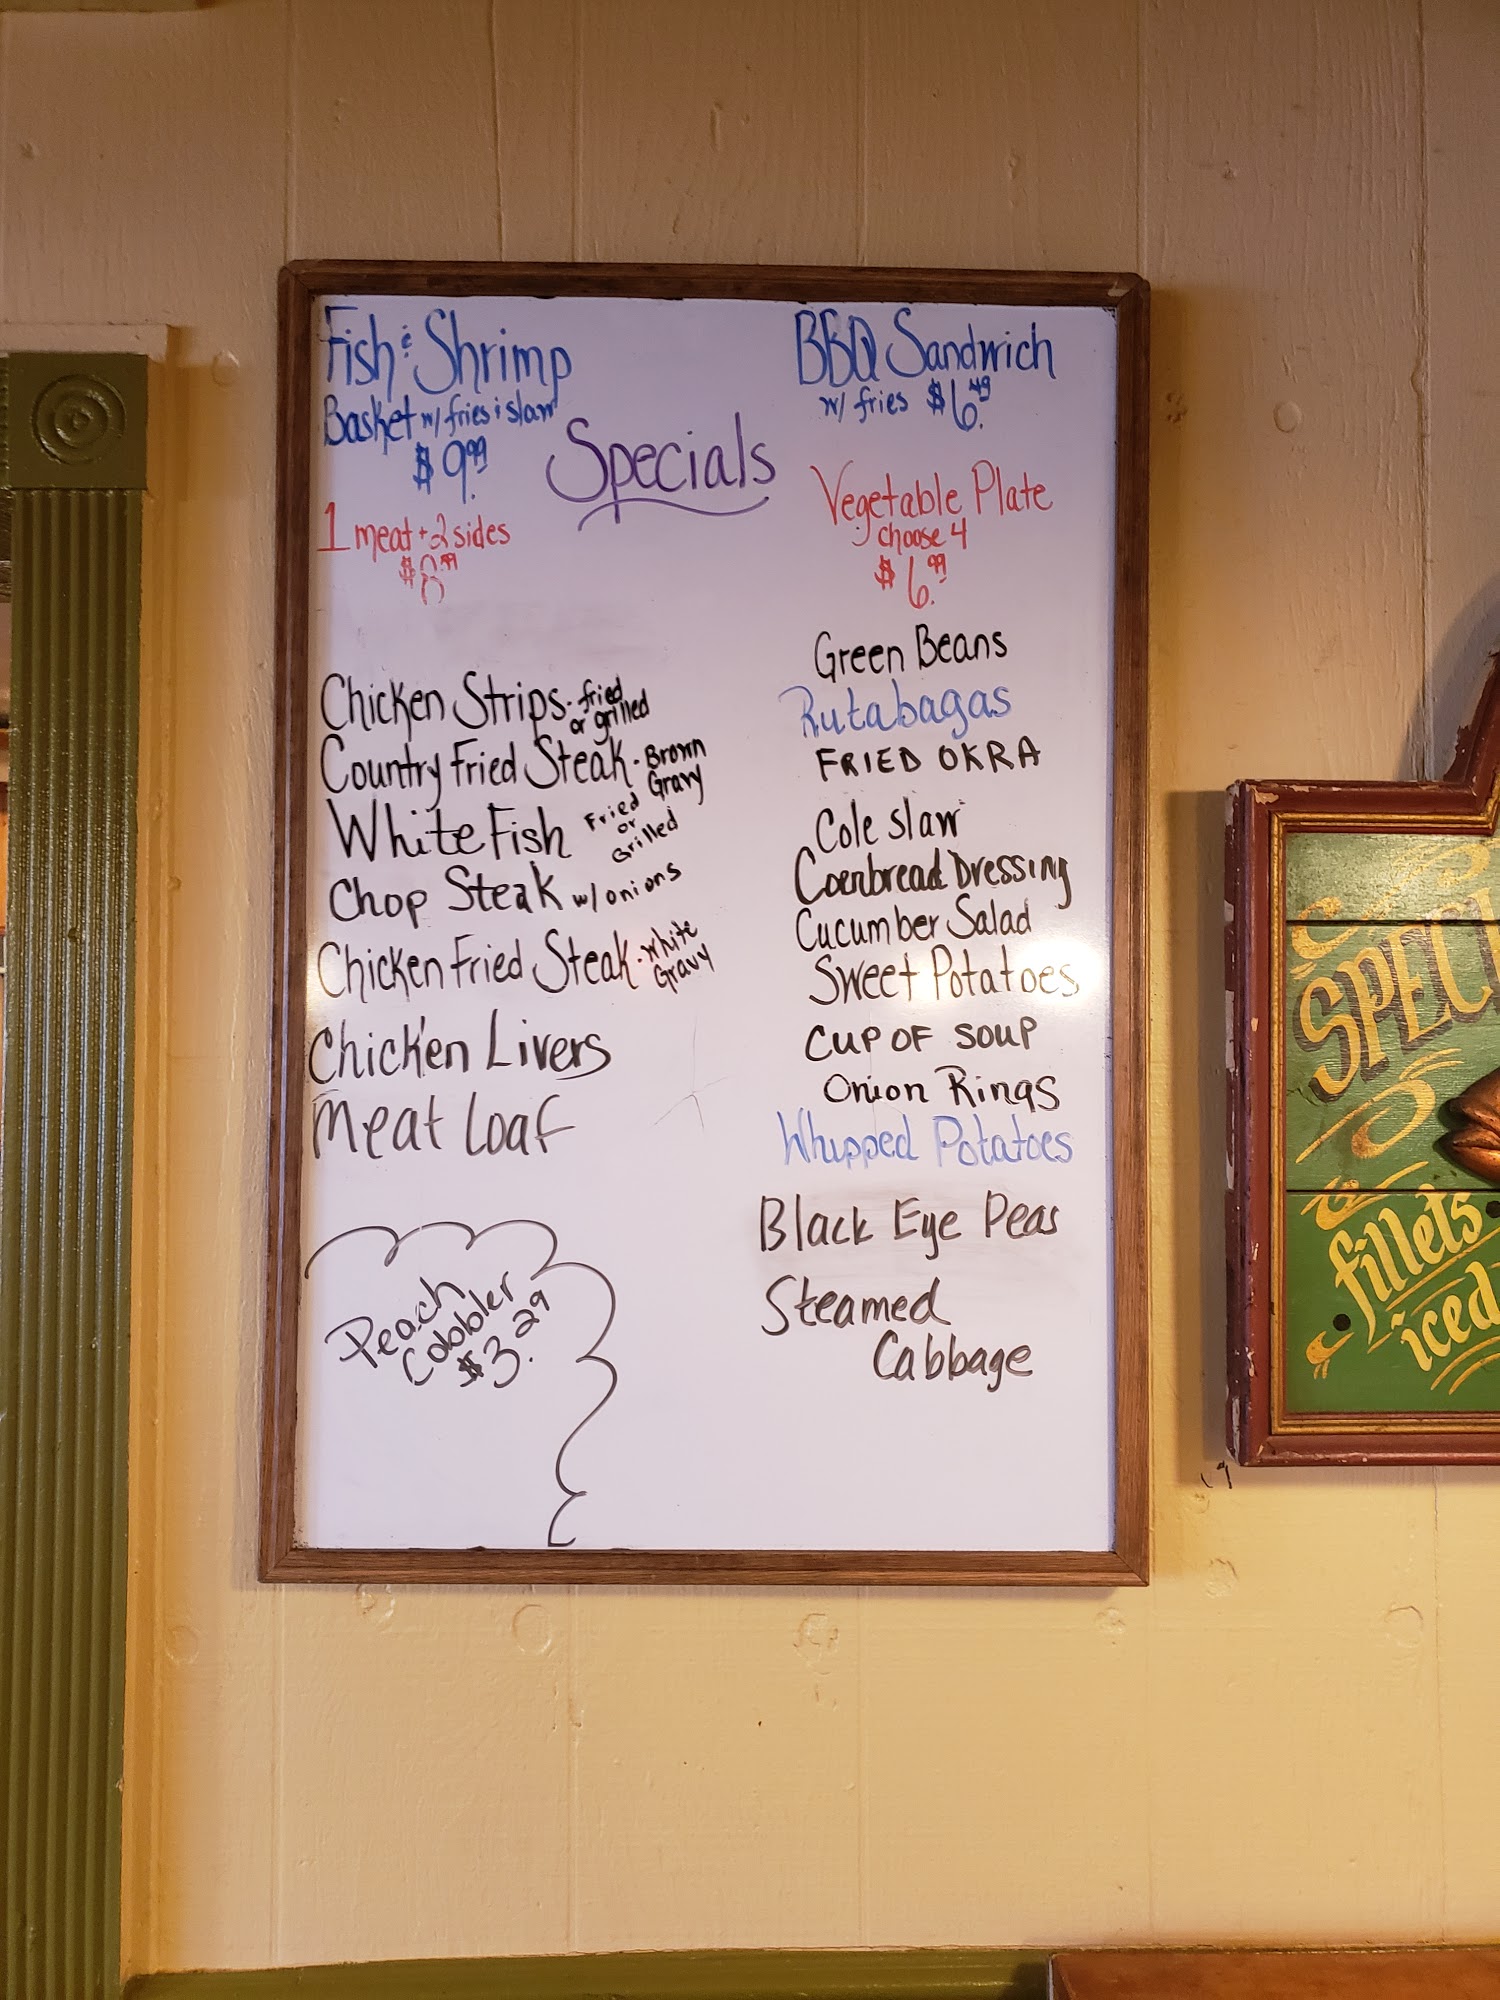 Fish & Shrimp
Basket w/ fries & slaw
$9.99
BBQ Sandwich
w/ fries $6.49
Specials
1 meat + 2 sides
$8.99
Vegetable Plate
choose 4
$6.99
Chicken Strips - fried
or grilled
Country Fried Steak - Brown
Gravy
White Fish Fried
or
Grilled
Chop Steak w/ onions
Chicken Fried Steak - White
Gravy
Chicken Livers
Meat Loaf
Peach
Cobbler
$3.29
Green Beans
Rutabagas
FRIED OKRA
Cole slaw
Cornbread Dressing
Cucumber Salad
Sweet Potatoes
CUP OF SOUP
Onion Rings
Whipped Potatoes
Black Eye Peas
Steamed
Cabbage
SPECI
fillets
iced